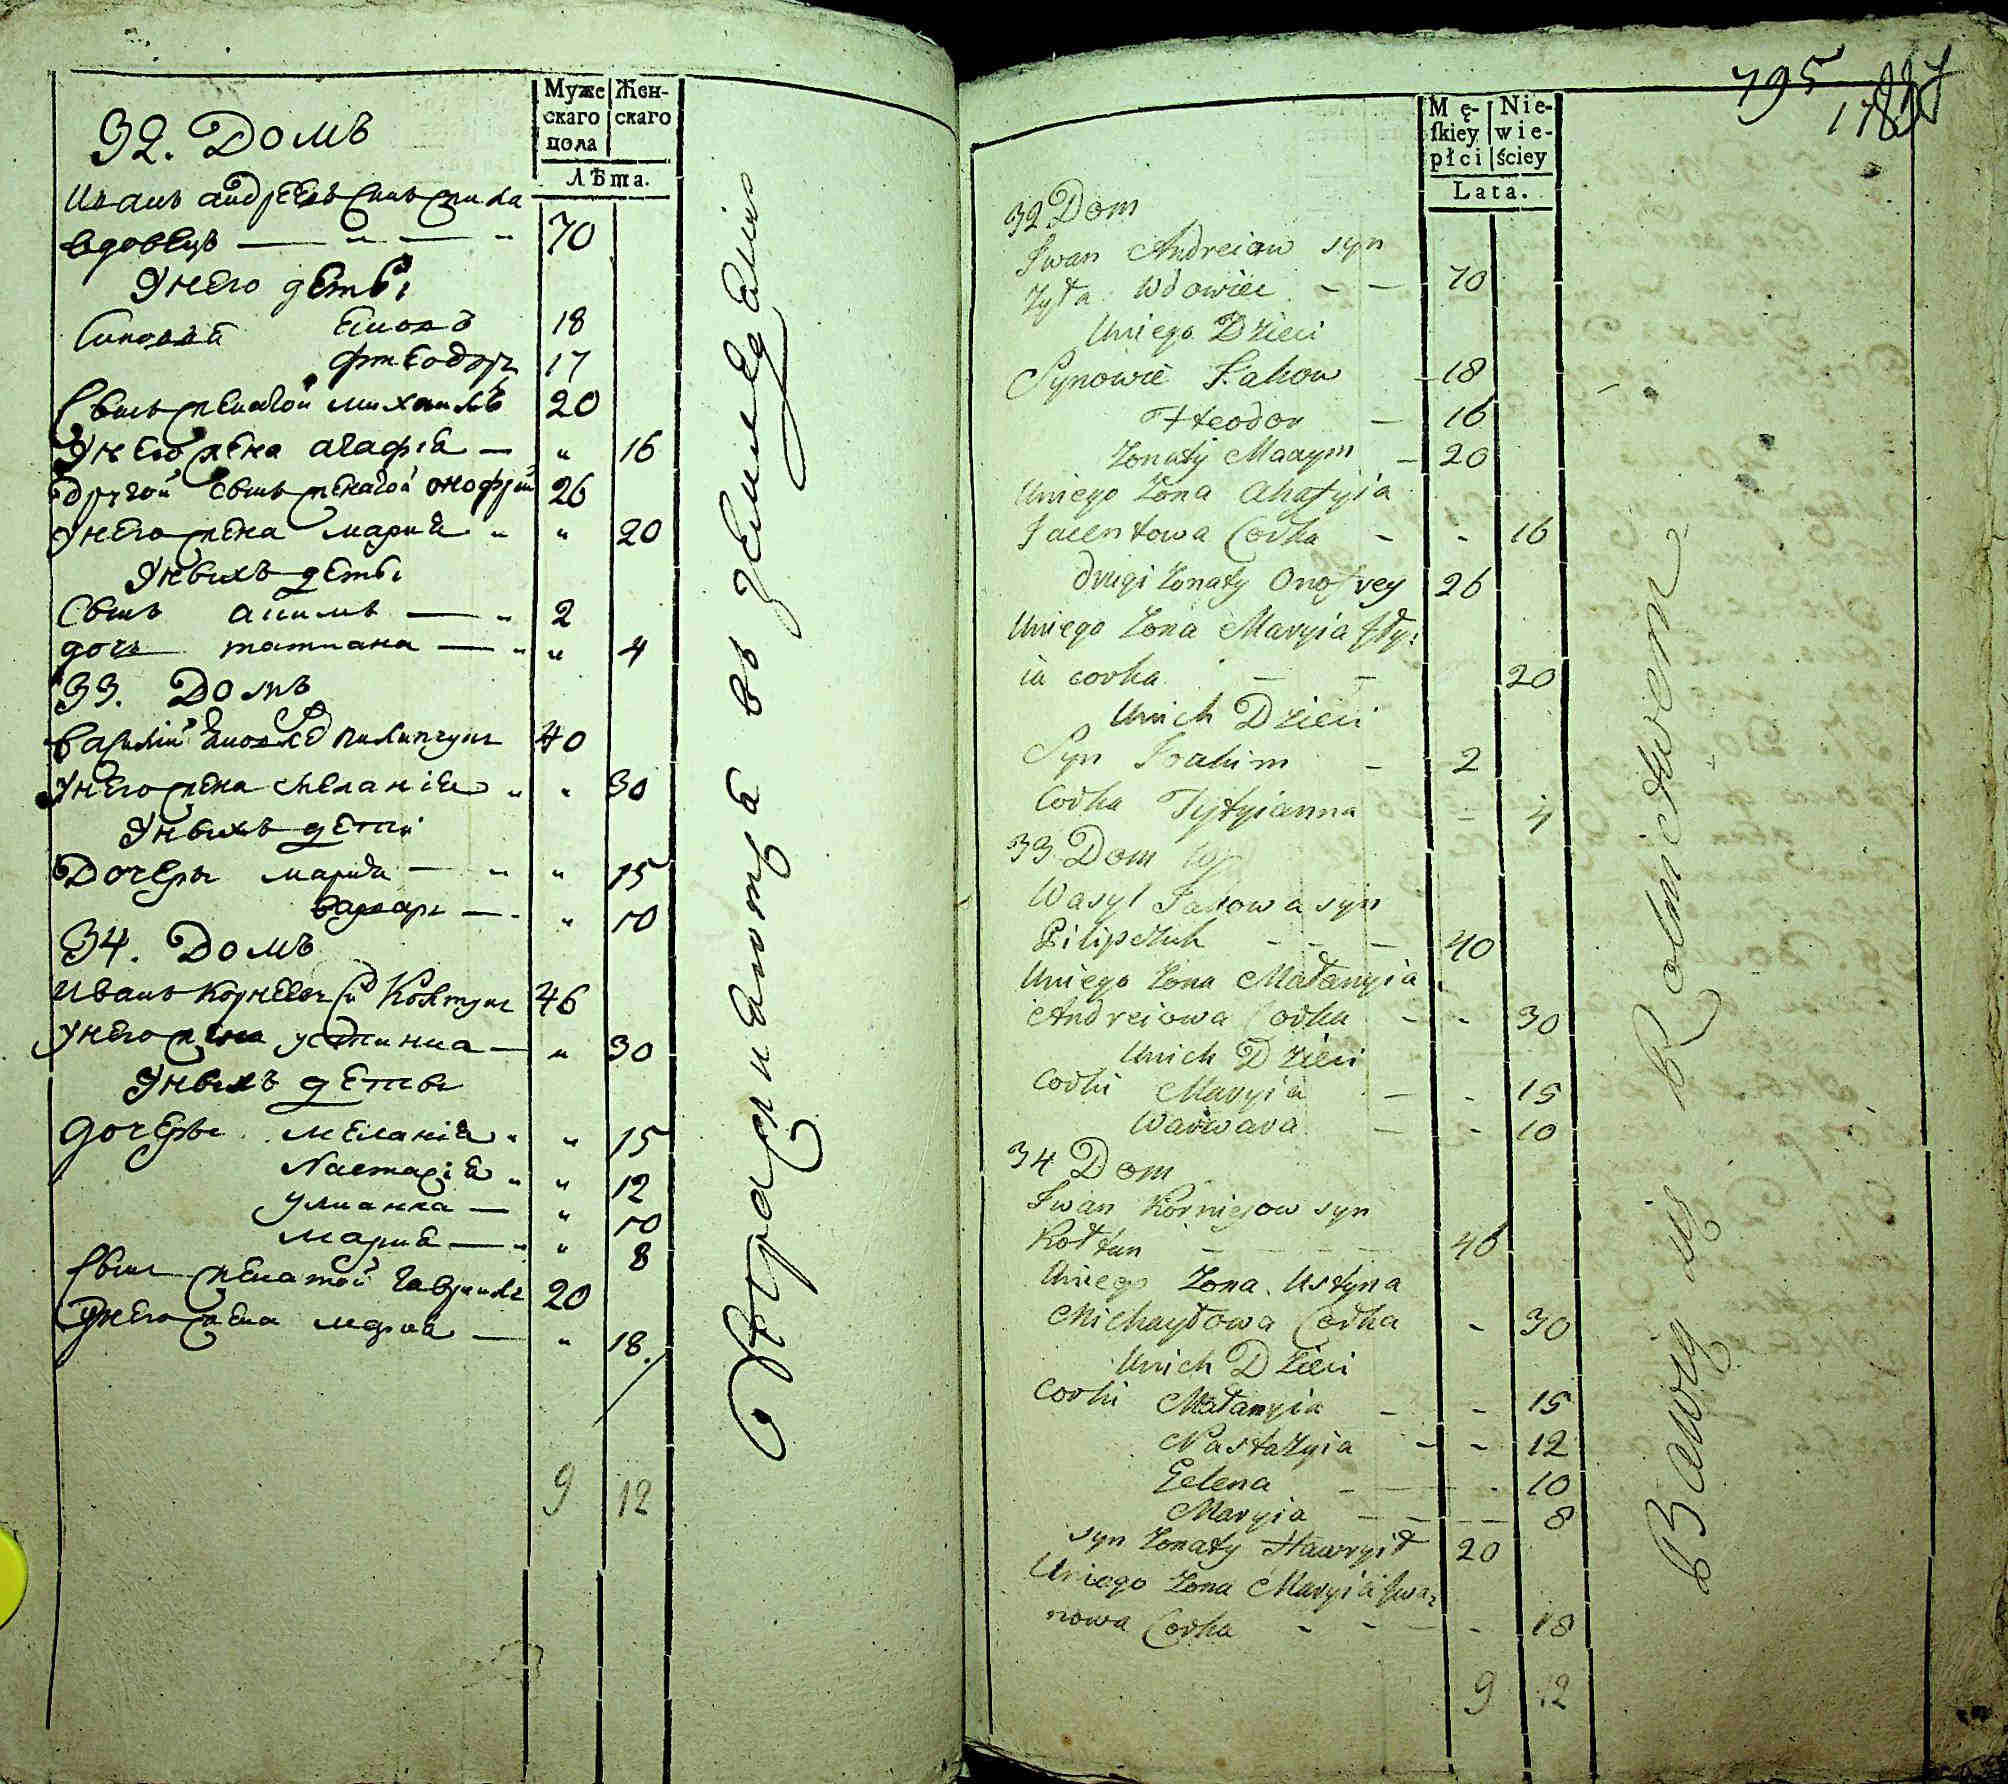 Муже Жен-
скаго скаго
пола
Лѣта.
32. Домъ
Иванъ андреевъ сынъ
вдовецъ — " — " 70
Унего детѣ
Синовья Яковъ 18
Фтеодоръ 17
Сынъ женатой михаилъ 20
Унего жена агафия — " 16
другой сынъ женатой онофрий 26
Унего жена мария " " 20
Унихъ дети
Сынъ акимъ — " 2
дочь татиана — " " 4
33. Домъ
Василий Яковлевъ Пилипчукъ 40
Унего жена меланія " " 30
Унихъ дети
Дочеры мария — " " 15
варвара — " " 10
34. Домъ
Иванъ Корнеевъ Колтунъ 46
Унего жена устиниа — " 30
Унихъ деты
дочеры меланія " " 15
Настасія " " 12
улианна — " 10
мария — " " 8
Сынъ женатой гаврило 20
Унего жена мария — " 18.
9 12
Обращаютца въ земледелию
195
Mę- Nie-
skiey wie-
płci ściey
Lata.
32 Dom
Iwan Andreiow syn
Zyła Wdowiec - - 70
Uniego Dzieci
Synowie Jakow - 18
Fteodor - 16
Zonaty Maxym - 20
Uniego Zona Ahafyia
Jacentowa Corka - - 16
drugi Zonaty Onofrey 26
Uniego Zona Maryia
ia corka - - 20
Unich Dzieci
Syn Joahim - 2
Corka Tytyianna - 4
33 Dom
Wasyl Jakowa syn
Pilipczuk - - - 40
Uniego Zona Małanyia
Andreiowa Corka - - 30
Unich Dzieci
Corki Maryia - - 15
Warwara - - 10
34 Dom
Iwan Korniejow syn
Kołtun - - - - 46
Uniego Zona Ustyna
Michayłowa Corka - 30
Unich Dzieci
Corki Małanyia - - 15
Nastazyia - - 12
Helena - - - 10
Maryia - - - - 8
syn Zonaty Hawryił 20
Uniego Zona Maryia Iwa-
nowa Corka - - - - 18
9 12
Bawią się Rolnictwem